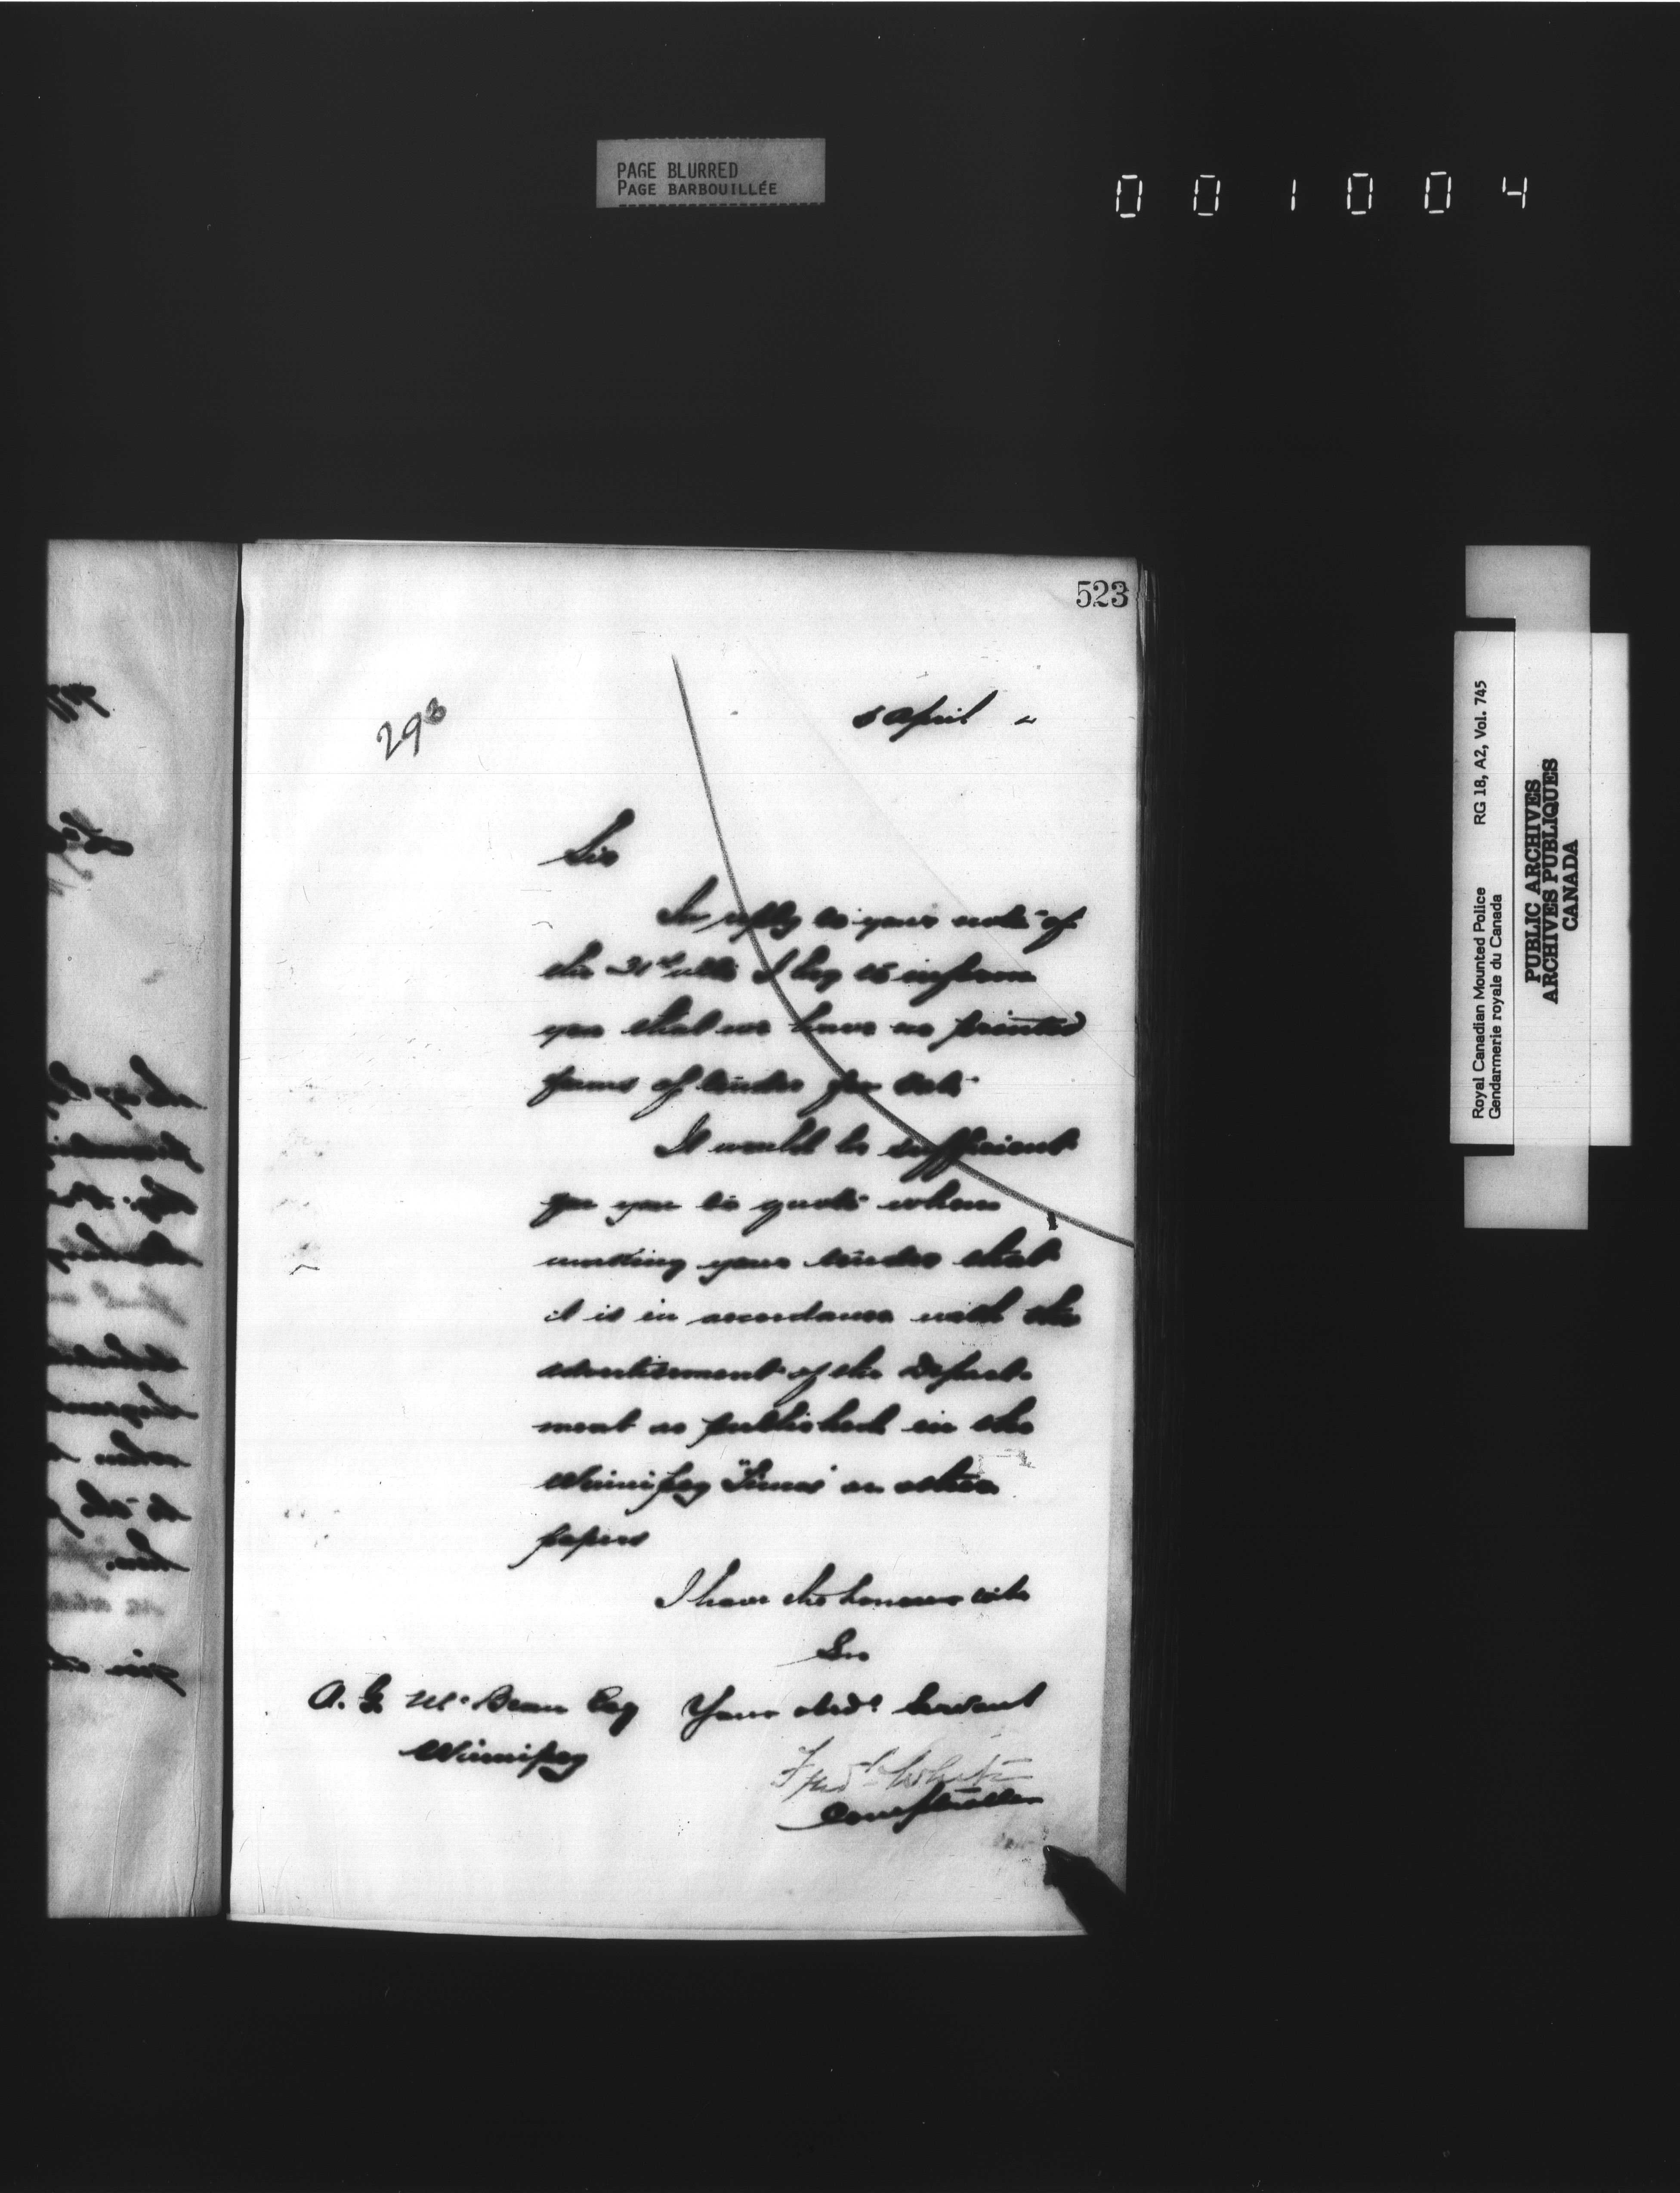 PAGE BLURRED
PAGE BARBOUILLÉE
001004
523
298
5 April "
Sir
In reply to your note of
the 31st ulto I beg to inform
you that we have no printed
forms of tender for oats
It would be sufficient
for you to quote when
making your tender that
it is in accordance with the
advertisement of the Depart-
ment as published in the
Winnipeg "Times" or other
papers
I have the honour to be
Sir
Your obedt Servant
Fredk White
Comptroller
A. G. McBean Esq
Winnipeg
Royal Canadian Mounted Police RG 18, A2, Vol. 745
Gendarmerie royale du Canada
PUBLIC ARCHIVES
ARCHIVES PUBLIQUES
CANADA